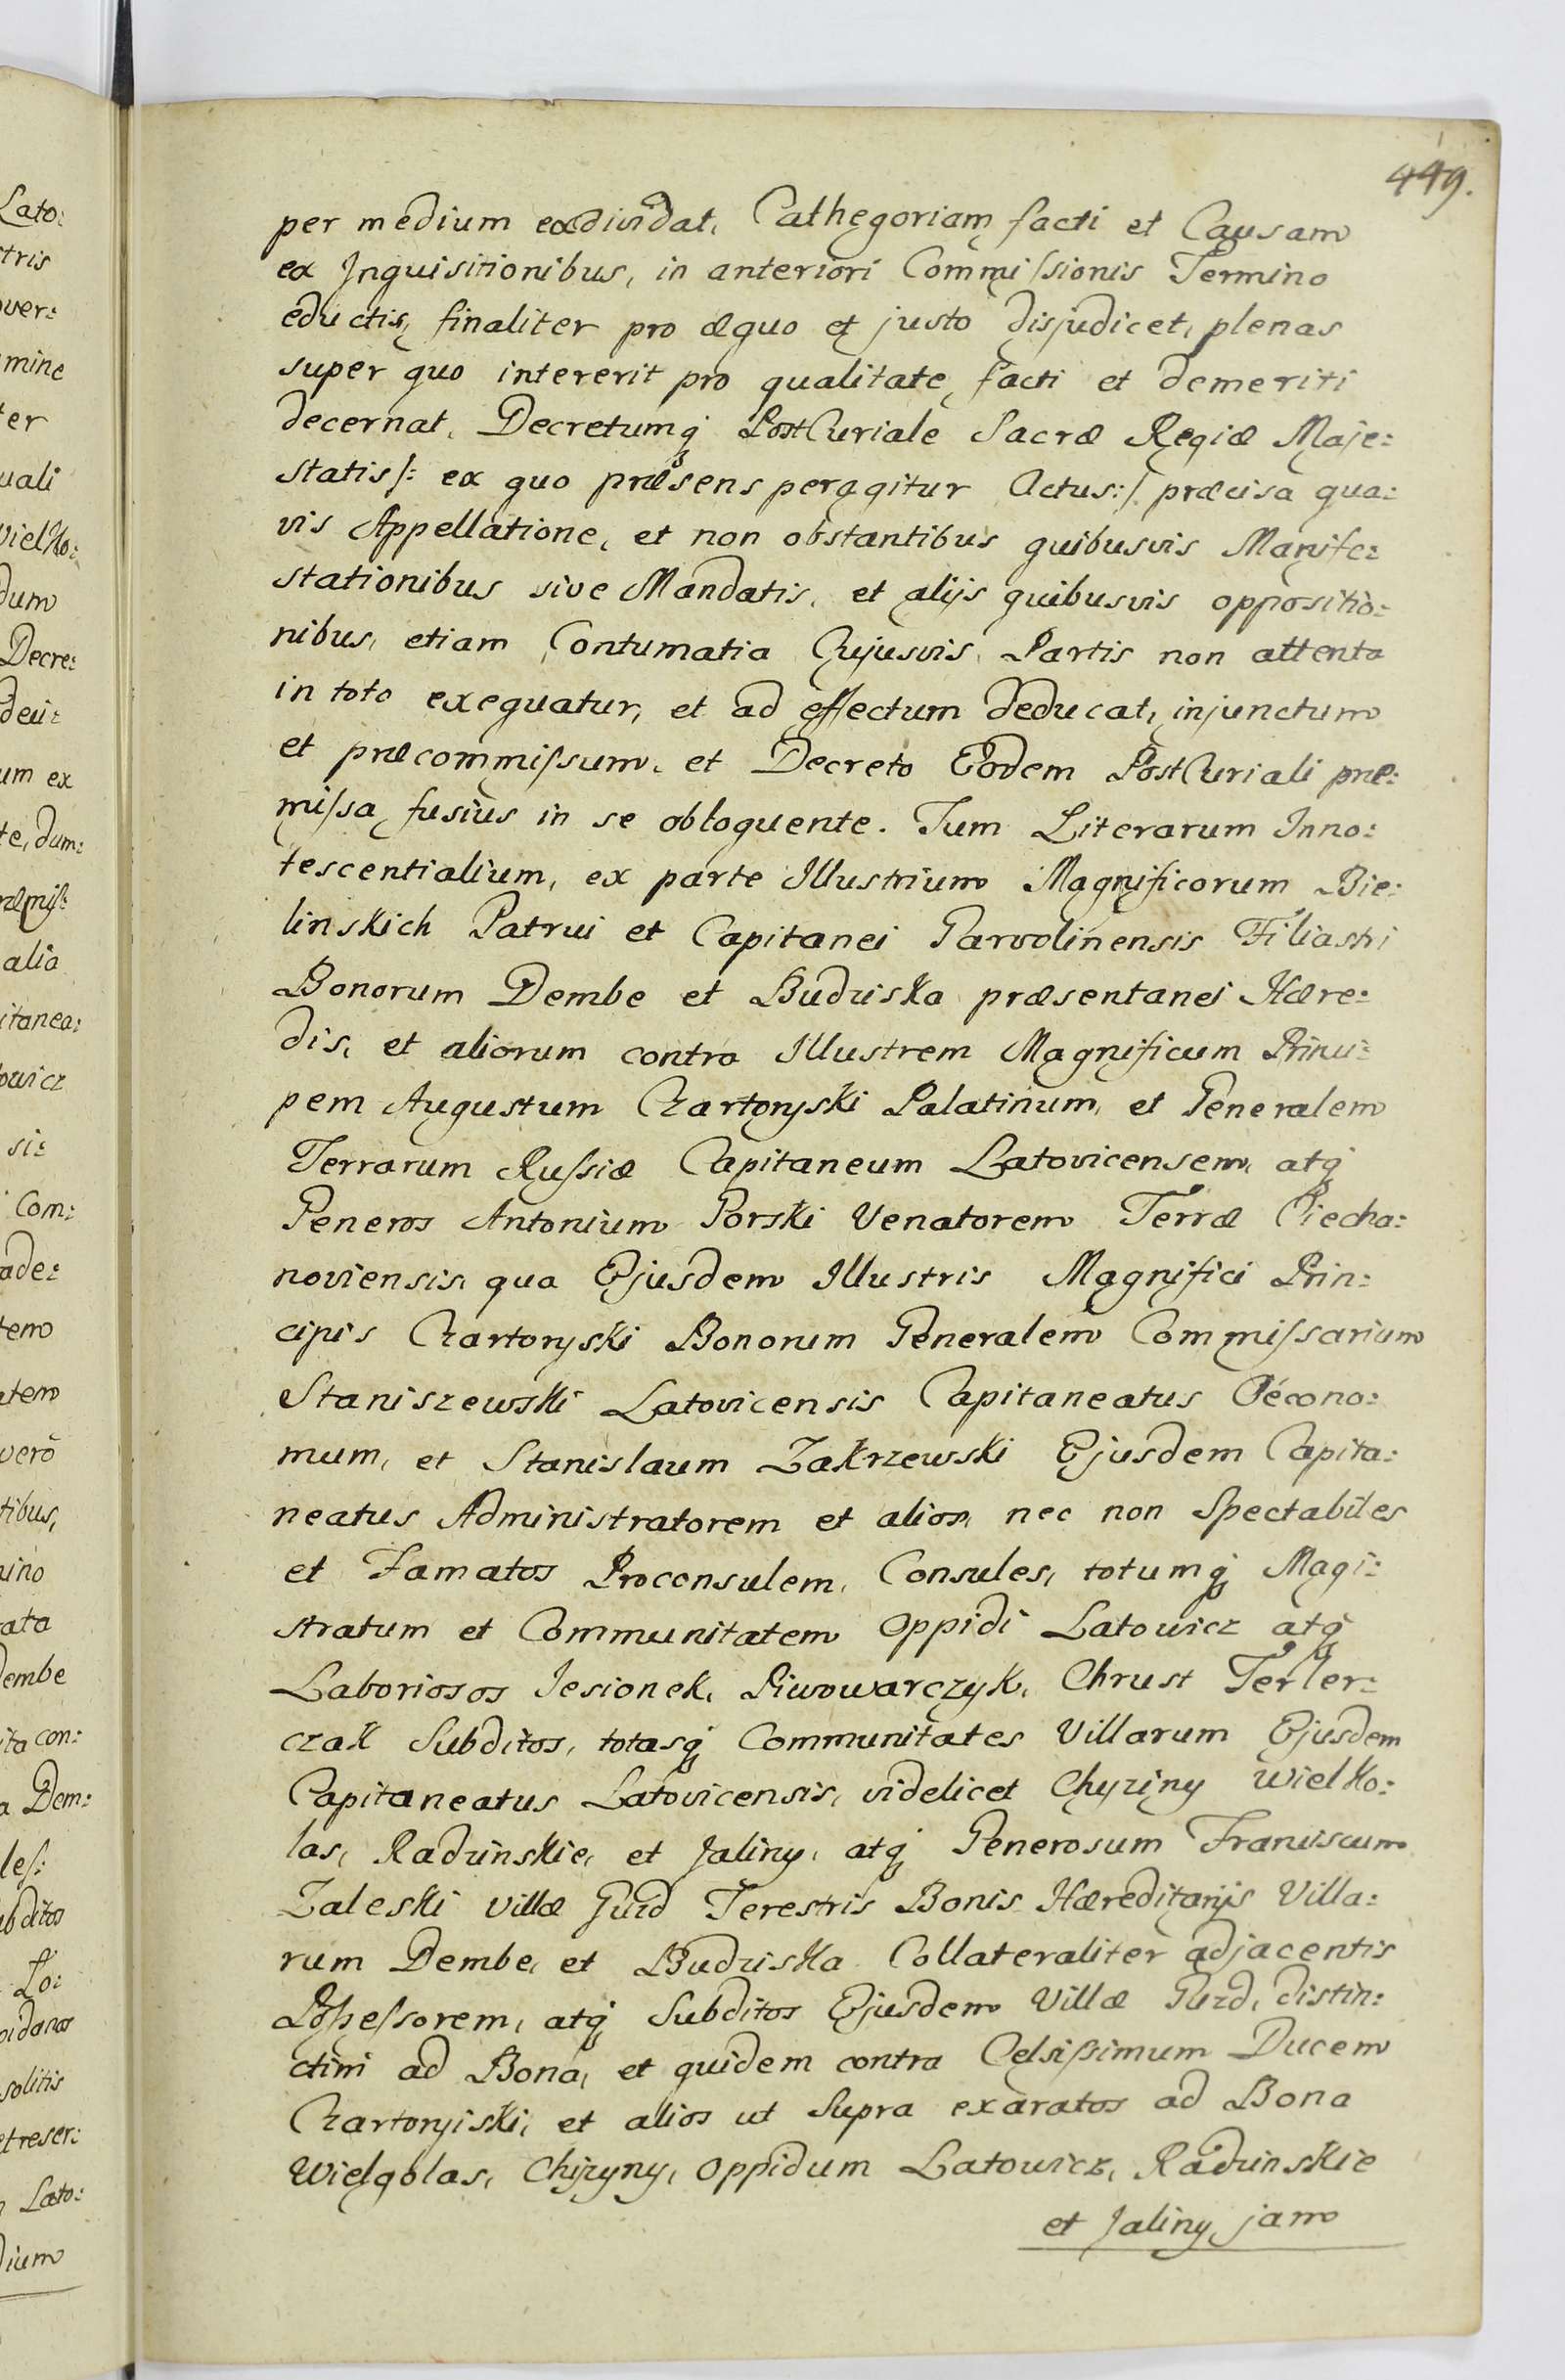 Lato:
tris
over:
mine
ter
uali
Wielko:
dum
Decre:
um ex
te, dum:
alia
itanea:
owicz
si:
Com:
ade:
tem
atem
verò
tibus,
nino
rata
Dembe
ita con:
a Dem:
les:
ubditos
Po:
pidanos
solitis
et reser:
Lato:
dium
449.
per medium exdividat, Cathegoriam facti et Causam
ex Inquisitionibus, in anteriori Commissionis Termino
eductis, finaliter pro æquo et justo disjudicet, plenas
super quo intererit pro qualitate facti et demeriti
decernat. Decretumq; PostCuriale Sacræ Regiæ Maje:
statis /: ex quo præsens peragitur Actus :/ præcisa qua:
vis Appellatione, et non obstantibus quibusvis Manife:
stationibus sive Mandatis, et alijs quibusvis oppositio:
nibus, etiam Contumatia Cujusvis Partis non attenta
in toto exequatur, et ad effectum deducat, injunctum
et præcommissum, et Decreto Eodem PostCuriali præ:
missa fusius in se obloquente. Tum Literarum Inno:
tescentialium, ex parte Illustrium Magnificorum Bie:
linskich Patrui et Capitanei Garwolinensis Filiastri
Bonorum Dembe et Budziska præsentanei Hære:
dis, et aliorum contra Illustrem Magnificum Princi:
pem Augustum Czartoryski Palatinum, et Generalem
Terrarum Russiæ Capitaneum Latovicensem, atq;
Generos Antonium Gorski Venatorem Terræ Ciecha:
noviensis, qua Ejusdem Illustris Magnifici Prin:
cipis Czartoryski Bonorum Generalem Commissarium
Staniszewski Latovicensis Capitaneatus Oécono:
mum, et Stanislaum Zakrzewski Ejusdem Capita:
neatus Administratorem et alios, nec non Spectabiles
et Famatos Proconsulem, Consules, totumq; Magi:
stratum et Communitatem Oppidi Latowicz atq;
Laboriosos Jesionek, Piwowarczyk, Chrust Terler:
czak Subditos, totasq; Communitates Villarum Ejusdem
Capitaneatus Latovicensis, videlicet Chyziny Wielko:
las, Radzinskie, et Jaliny, atq; Generosum Franciscum
Zaleski Villæ Guzd Terestris Bonis Hæreditarijs Villa:
rum Dembe, et Budziska Collateraliter adjacentis
Possessorem, atq; Subditos Ejusdem Villæ Guzd, distin:
ctim ad Bona, et quidem contra Celsissimum Ducem
Czartoryiski, et alios ut Supra exaratos ad Bona
Wielgolas, Chyzyny, Oppidum Latowicz, Radzinskie
et Jaliny, jam